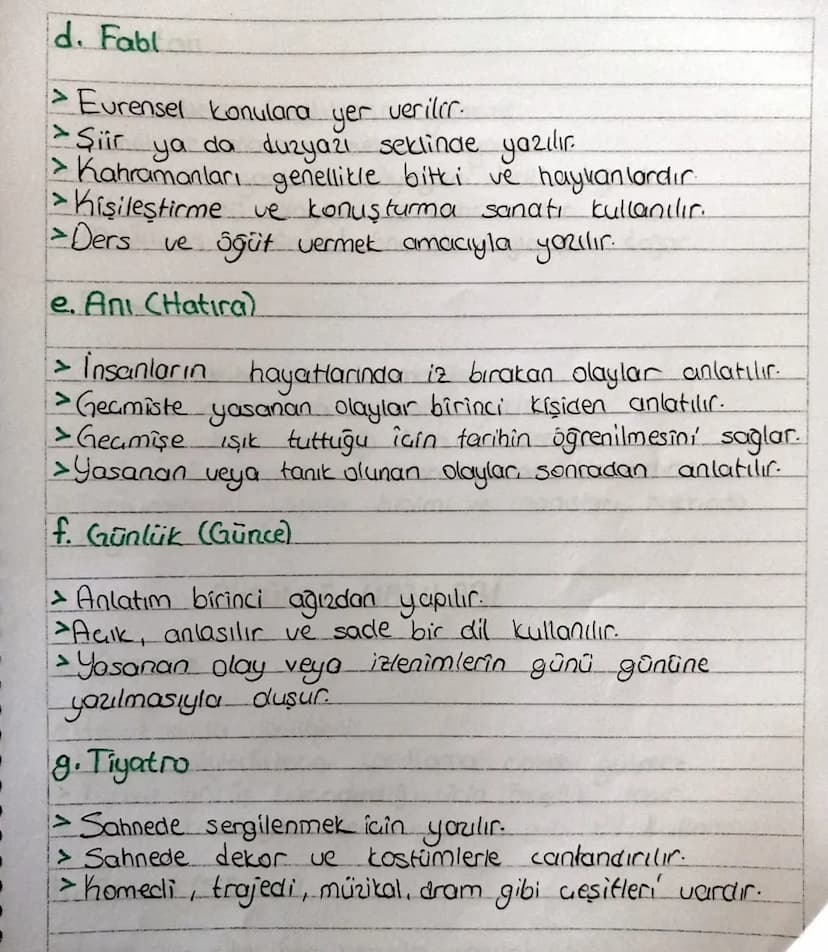 d. Fabl
> Evrensel konulara yer verilir.
> Şiir ya da duzyazı seklinde yazılır.
> Kahramanları genellikle bitki ve hayvanlardır.
> Kişileştirme ve konuşturma sanatı kullanılır.
> Ders ve öğüt vermek amacıyla yazılır.
e. Anı (Hatıra)
> İnsanların hayatlarında iz bırakan olaylar anlatılır.
> Gecmiste yasanan olaylar birinci kişiden anlatılır.
> Gecmişe ışık tuttuğu icin tarihin öğrenilmesini sağlar.
> Yasanan veya tanık olunan olaylar, sonradan anlatılır.
f. Günlük (Günce)
> Anlatım birinci ağızdan yapılır.
> Acık, anlasılır ve sade bir dil kullanılır.
> Yasanan olay veya izlenimlerin günü gününe
yazılmasıyla duşur.
g. Tiyatro
> Sahnede sergilenmek icin yazılır.
> Sahnede dekor ve kostümlerle canlandırılır.
> Komedi, trajedi, müzikal, dram gibi ceşitleri vardır.